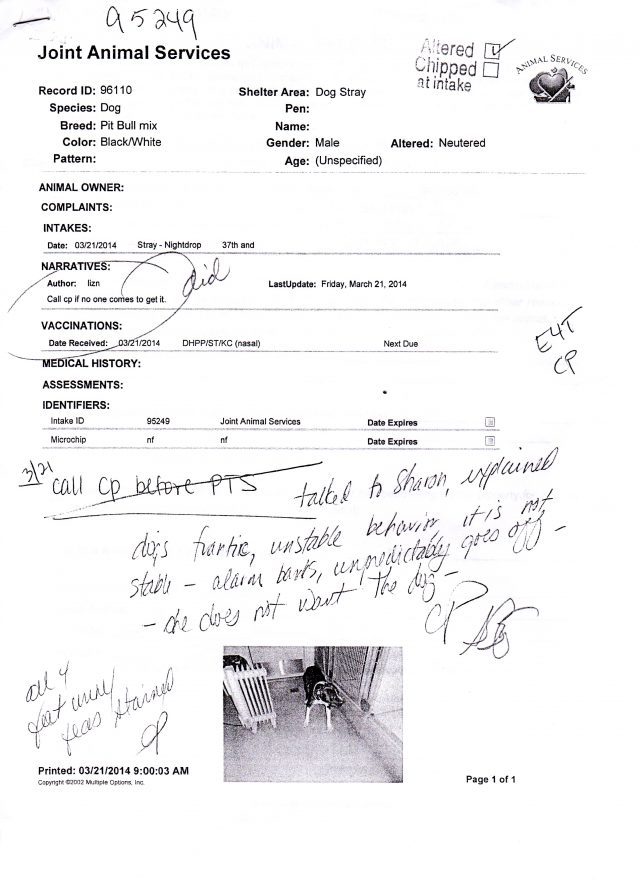 95249
Joint Animal Services
Altered
Chipped
at intake
ANIMAL SERVICES
Record ID: 96110 Shelter Area: Dog Stray
Species: Dog Pen:
Breed: Pit Bull mix Name:
Color: Black/White Gender: Male Altered: Neutered
Pattern: Age: (Unspecified)
ANIMAL OWNER:
COMPLAINTS:
INTAKES:
Date: 03/21/2014 Stray - Nightdrop 37th and
NARRATIVES:
did
Author: lizn LastUpdate: Friday, March 21, 2014
Call cp if no one comes to get it.
VACCINATIONS:
Date Received: 03/21/2014 DHPP/ST/KC (nasal) Next Due
E4T
CP
MEDICAL HISTORY:
ASSESSMENTS:
IDENTIFIERS:
Intake ID 95249 Joint Animal Services Date Expires
Microchip nf nf Date Expires
3/21 call cp before PTS talked to Sharon, explained
dogs frantic, unstable behavior, it is not
stable - alarm barks, unpredictably goes off -
- she does not want the dog -
CP
all 4
feet
feas stained
CP
Printed: 03/21/2014 9:00:03 AM
Copyright ©2002 Multiple Options, Inc.
Page 1 of 1